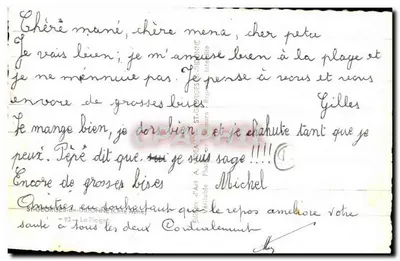 Chère mané, chère mena, cher petu
Je vais bien; je m'amuse bien à la plage et
je ne mennuie pas. Je pense à vous et vous
envoie de grosses bises. Gilles
Je mange bien, je dors bien et je chahute tant que je
peux. Pépé dit que je suis sage !!!!
Encore de grosses bises Michel
en souhaitant que le repos améliore votre
santé à tous les deux Cordialement